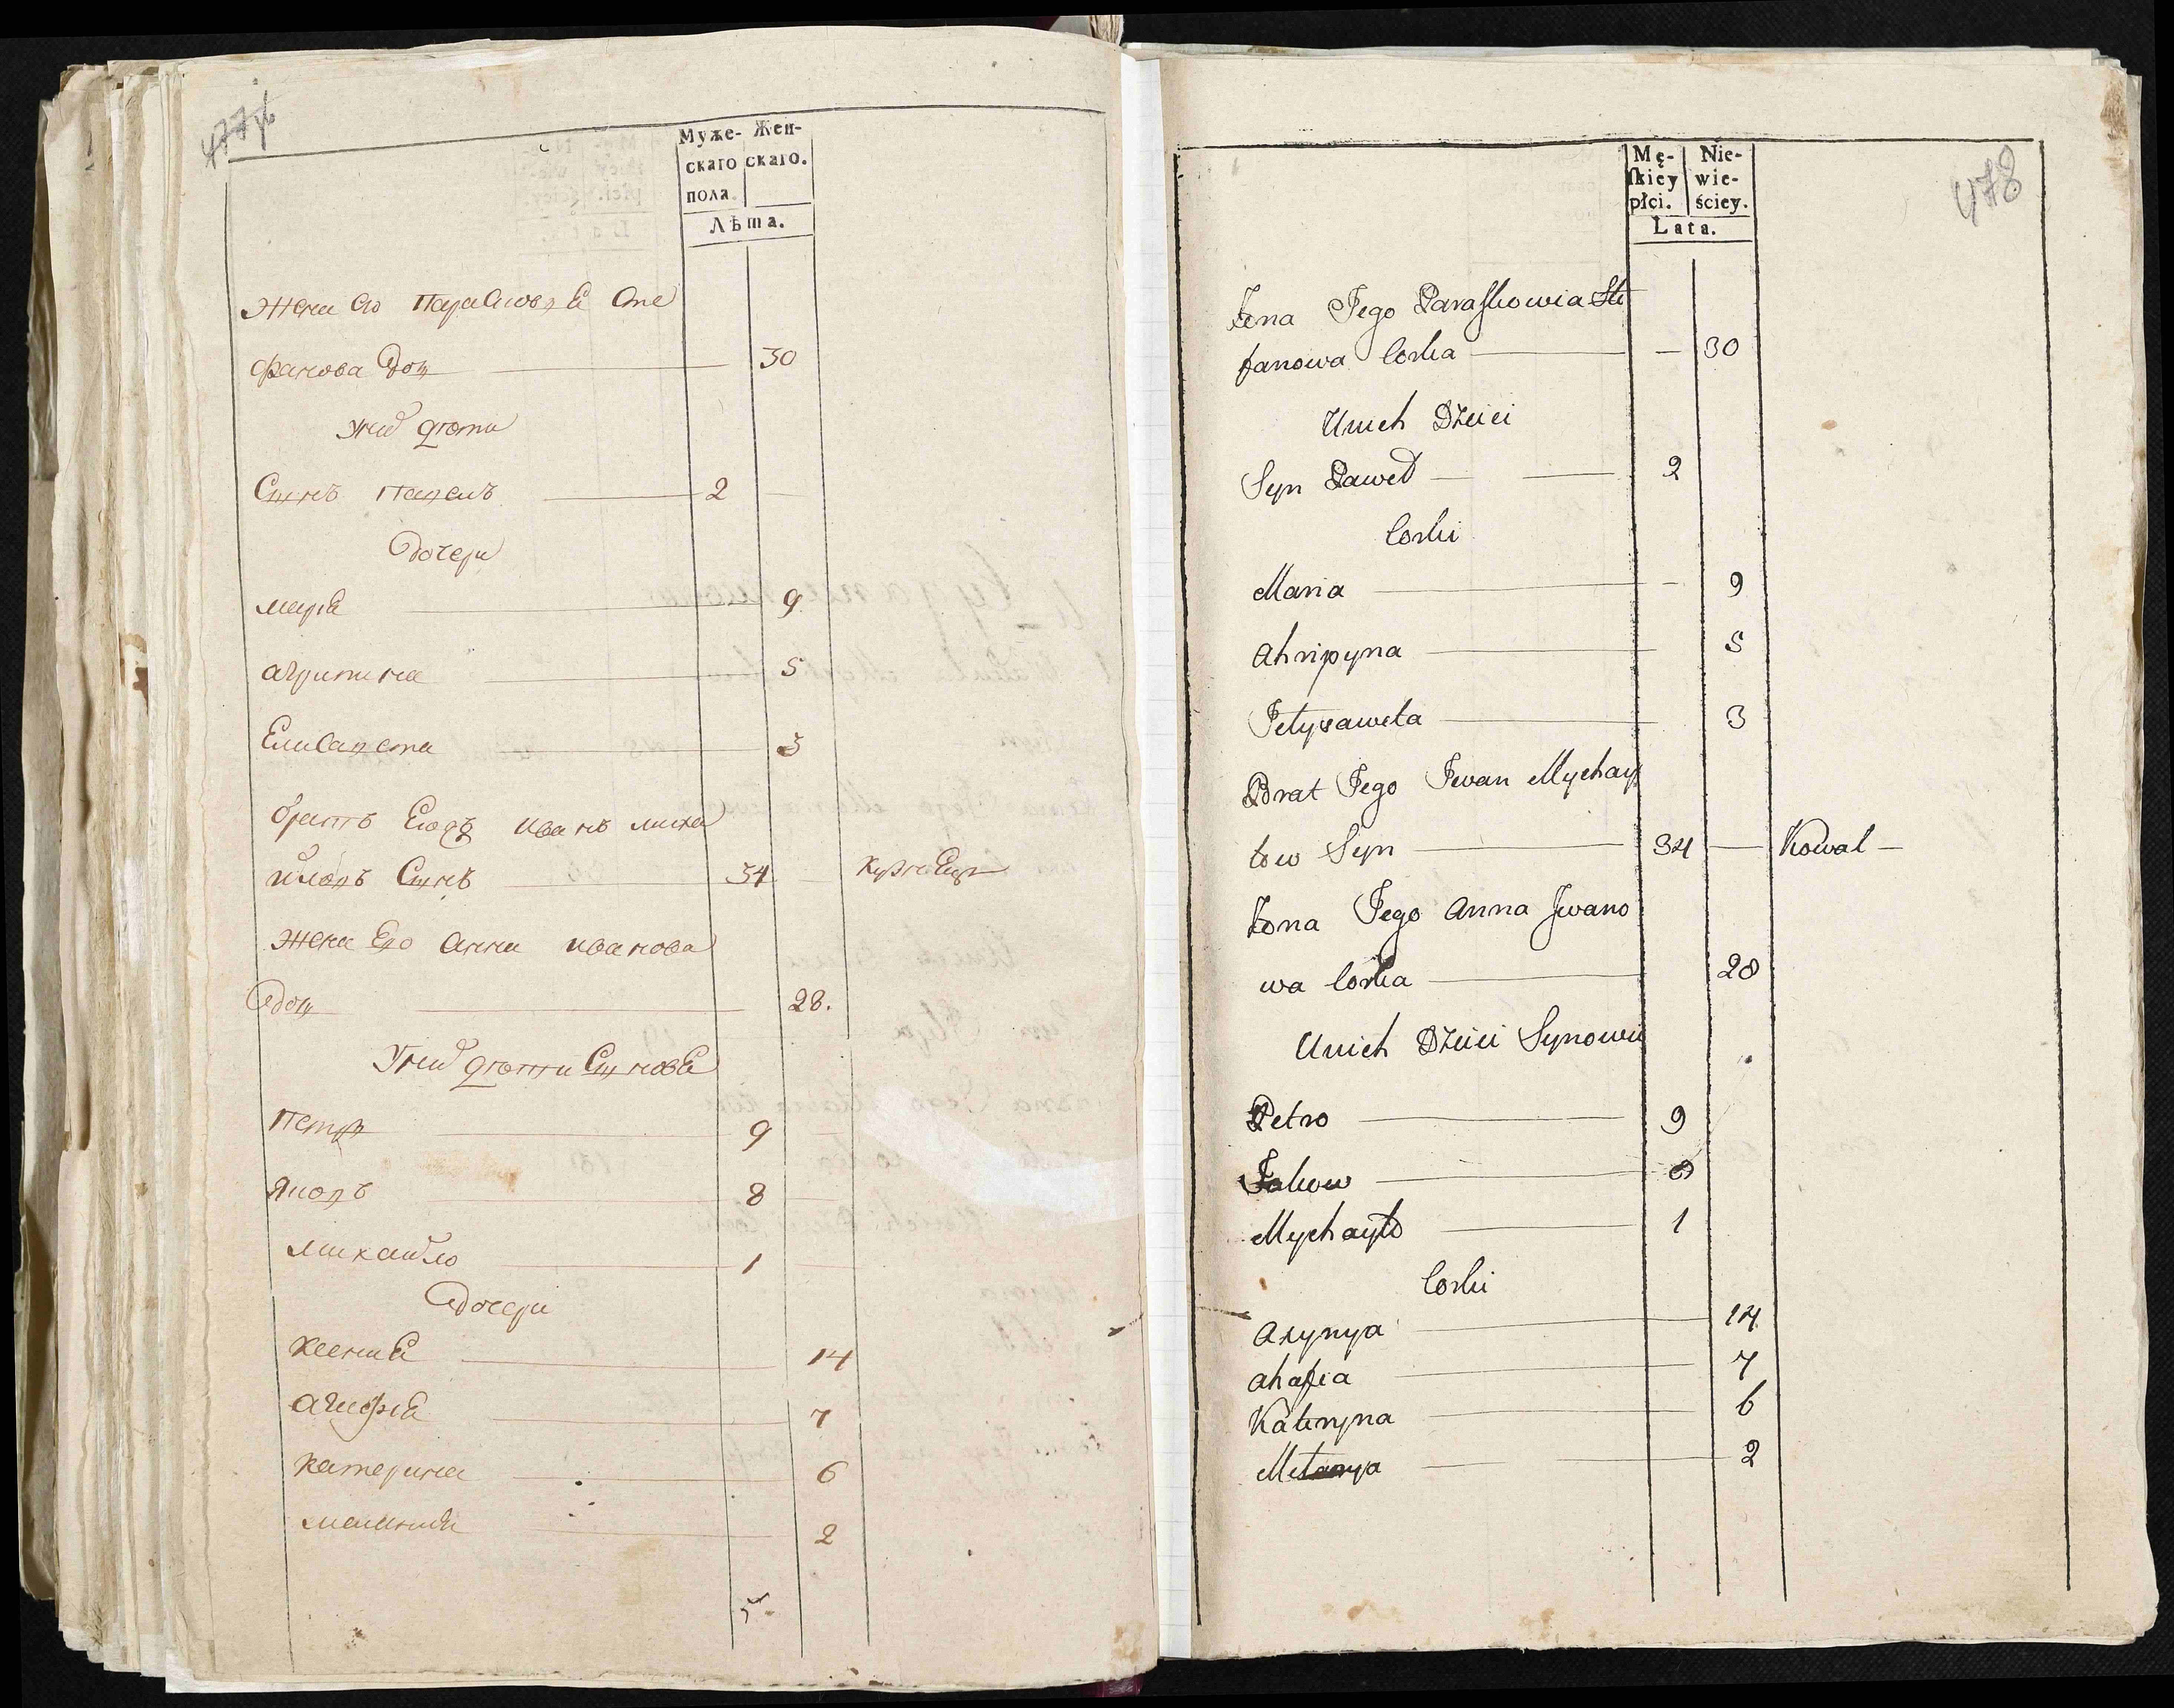 477об
Муже- Жен-
скаго скаго.
пола.
Лѣта.
Жена его Парасковѣя Сте
фанова Доч 30
У них дѣти
Сынъ Павелъ 2
Дочери
Марія 9
Агрипина 5
Елисавета 3
Братъ Его Иванъ Миха
йловъ Сынъ 34 Кузнец
Жена Его Анна Иванова
Доч 28.
У них дѣти Сыновя
Петр 9
Яковъ 8
Михайло 1
Дочери
Ксения 14
Агафія 7
Катерина 6
Мелания 2
478
Mę- Nie-
skiey wie-
płci. ściey.
Lata.
Żona Jego Paraskowia Ste
fanowa Corka 30
U nich Dzieci
Syn Paweł 2
Corki
Maria 9
Ahripyna 5
Jełysaweta 3
Brat Jego Jwan Mychay
łow Syn 34 Kowal
Żona Jego Anna Jwano
wa Corka 28
U nich Dzieci Synowie
Petro 9
Jakow 8
Mychayło 1
Corki
Axynya 14
Ahafia 7
Kateryna 6
Mełanya 2